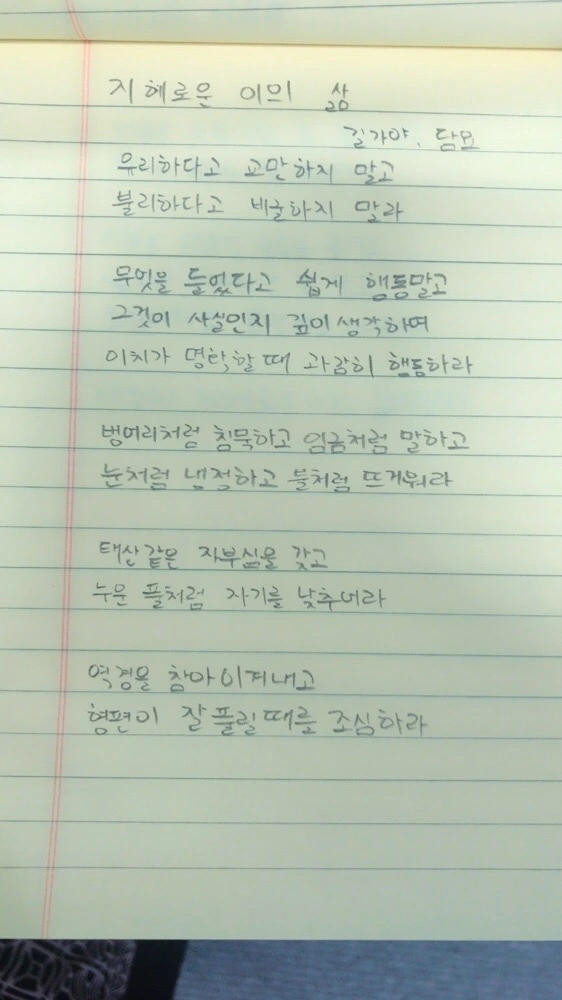 지혜로운 이의 삶
길가야. 담요
유리하다고 교만하지 말고
불리하다고 비굴하지 말라
무엇을 들었다고 쉽게 행동말고
그것이 사실인지 깊이 생각하여
이치가 명확할 때 과감히 행동하라
벙어리처럼 침묵하고 임금처럼 말하고
눈처럼 냉정하고 불처럼 뜨거워라
태산같은 자부심을 갖고
누운 풀처럼 자기를 낮추어라
역경을 참아 이겨내고
형편이 잘 풀릴때를 조심하라